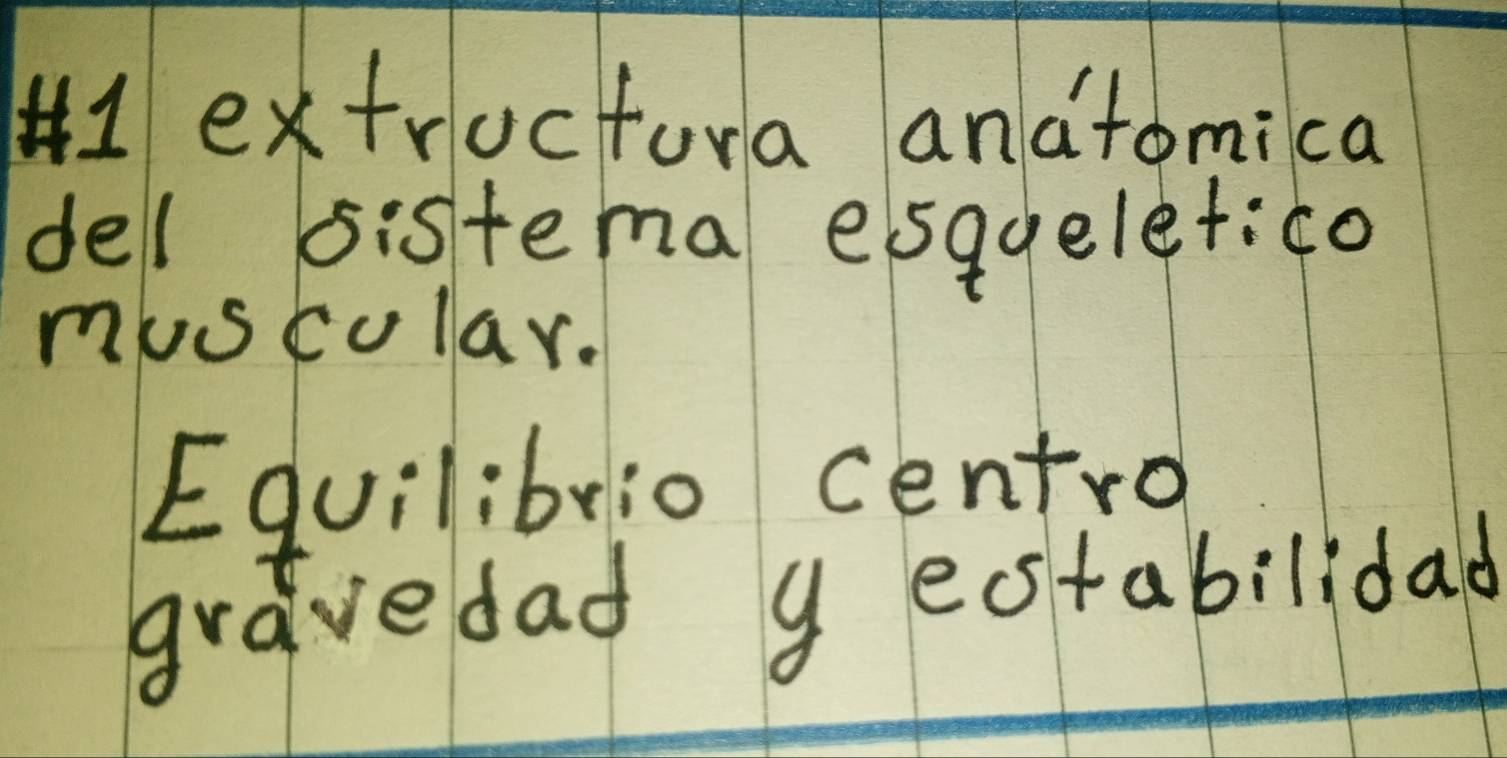 #1 extructura anátomica
del sistema esqueletico
muscular.
Equilibrio centro
gravedad y estabilidad